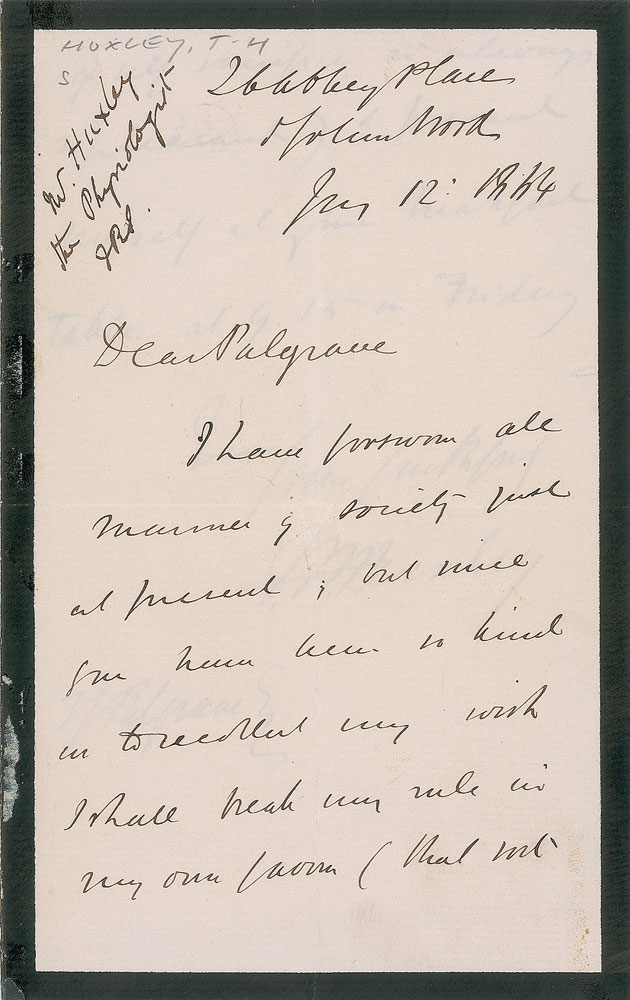 HUXLEY, T-H
S
Mr. Huxley
the Physiologist
FRS.
26 Abbey Place
St Johns Wood
12: 1864
Dear Palgrave
I have forsworn all
manner of society just
at present; but since
you have been so kind
as to recollect my wish
I shall break my rule in
my own favour (that sort